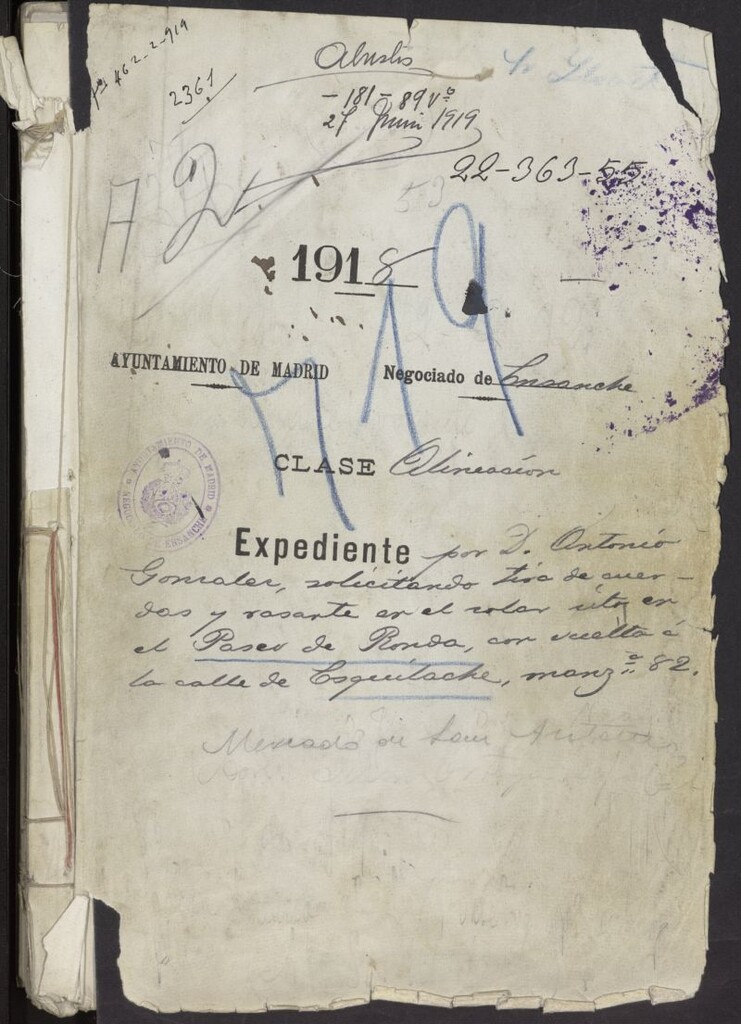 462-2-919
2361
-181-89 vº
27 Junio 1919
22-363-55
53
1918
719
AYUNTAMIENTO DE MADRID Negociado de Ensanche
CLASE Alineación
AYUNTAMIENTO DE MADRID
ENSANCHE
Expediente por D. Antonio
Gonzalez, solicitando tira de cuer-
das y rasante en el solar sito en
el Paseo de Ronda, con vuelta á
la calle de Esquilache, manzª 82.
Mercado de San Antonio